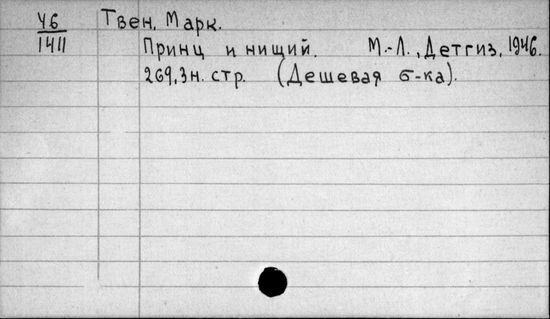 46
1411
Твен, Марк.
Принц и нищий. М.-Л., Детгиз, 1946.
269,3н. стр. (Дешевая б-ка).